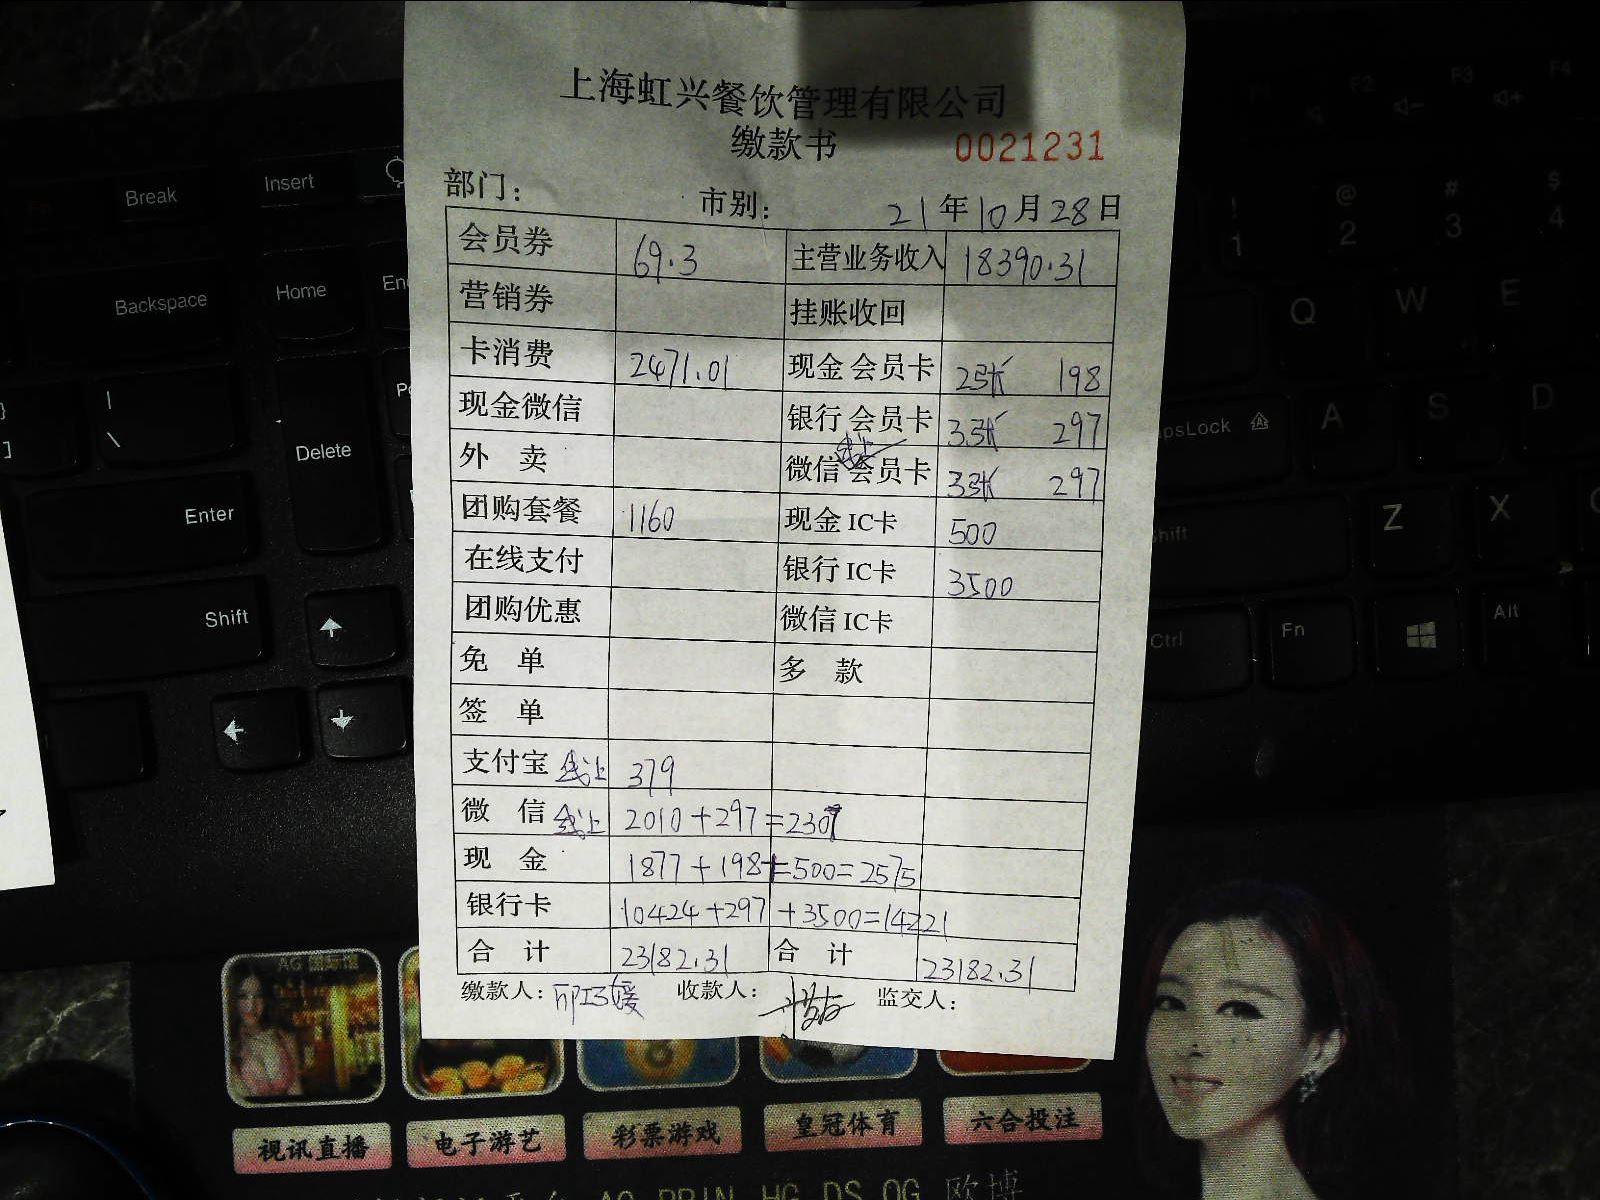 上海虹兴餐饮管理有限公司
缴款书 0021231
部门: 市别: 21年10月28日
会员券 69.3 主营业务收入 18390.31
营销券 挂账收回
卡消费 2471.01 现金会员卡 2张 198
现金微信 银行会员卡 3张 297
外 卖 微信线上会员卡 3张 297
团购套餐 1160 现金IC卡 500
在线支付 银行IC卡 3500
团购优惠 微信IC卡
免 单 多 款
签 单
支付宝 线上 379
微 信 线上 2010+297=2307
现 金 1877+198+=500=2575
银行卡 10424+297+3500=14221
合 计 23182.31 合 计 23182.31
缴款人: 收款人: 监交人:
Break Insert
Backspace Home En
| \ Delete
Enter
Shift
F2 F3 F4
@ 2 # 3 $ 4
! 1
Q W E
psLock A S D
hift Z X
Ctrl Fn Alt
AG 国际馆
视讯直播 电子游艺 彩票游戏 皇冠体育 六合投注
AG BBIN HG DS OG 欧博